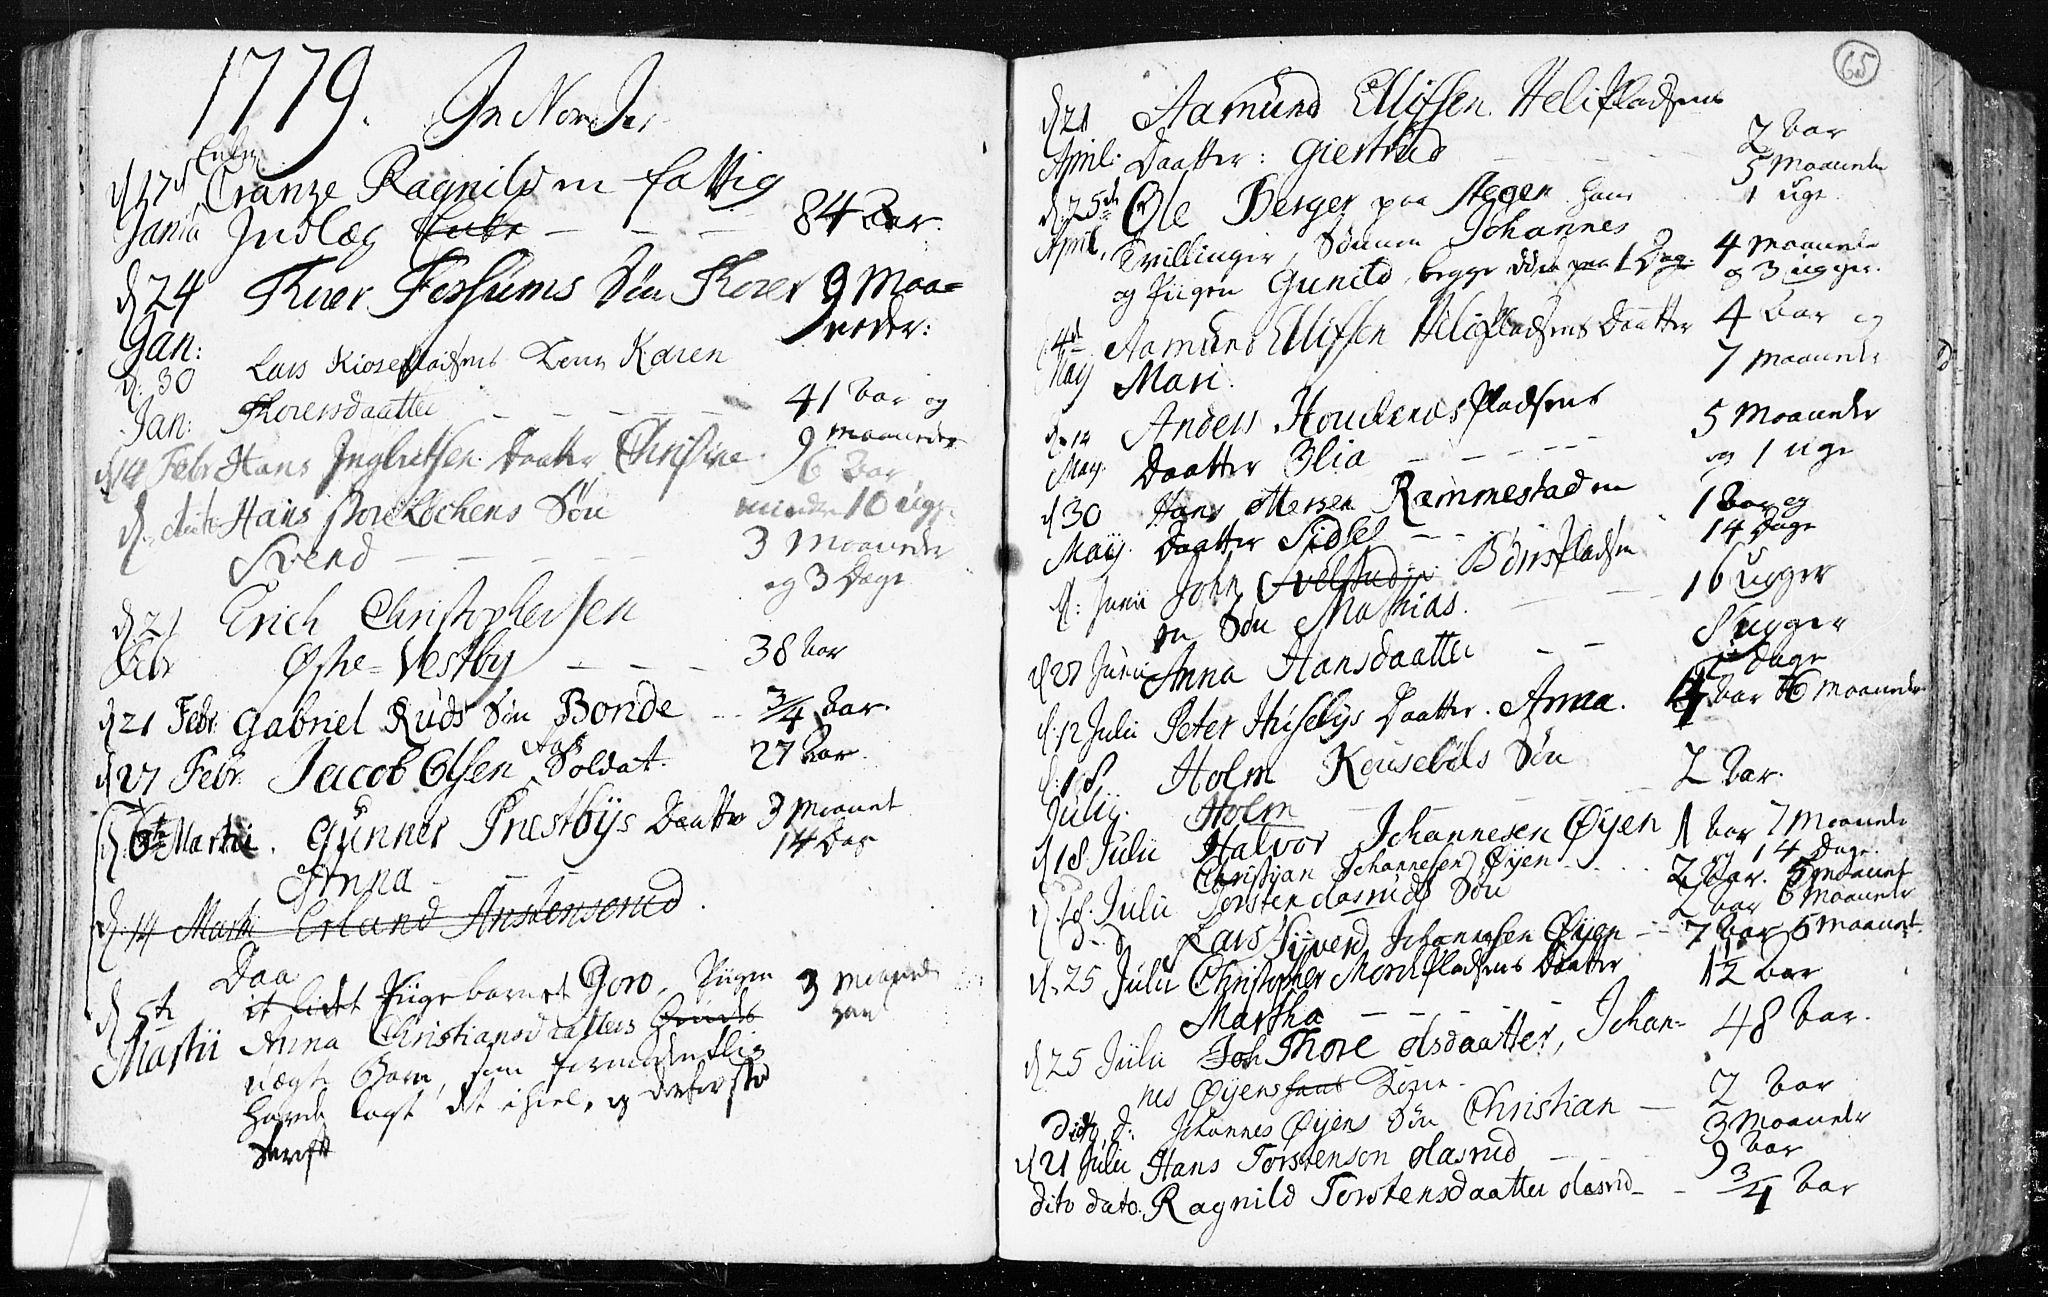 1779. In Nom: Jes
d 17d Enken
Cranze Ragnilsen fattig
Janu Indlæg Enke — — — 84 Aar.
d 24 Thoer Fossums Søn Thorer 9 Maa=
Jan: neder:
d. 30 Lars Kiosepladsens Kone Karen
Jan: Thorersdaatter — — — 41 Aar og
9 maaneder
d 14 Febr Hans Ingbretsen Daatter Christine 6 Aar
minder 10 ugge
d. dito Hans Søn
Svend — — — 3 Maaneder
og 3 Dage
d. 21 Erich Christophersen
Febr Østre=Vestby — — — 38 Aar
d 21 Febr Gabriel Ruds Søn Bonde — 3/4 Aar.
d 27 Febr. Jacob Olsen Aas Soldat. 27 Aar.
d. 6te Martii. Gunner Prestbys Daatter 3 Maanet
14 Dag
Anna —
d. 14 Martii Erland Anstenserud.
Daa
d 5te it lidet Pigebarn et Goro, Pigen 3 Maaneder
Martii Anna Christiansdaatters
uægte Barn, som formodentlig
havde lagt det ihiel, og derfor stod
skrift
65
d 21 Aamund Ellifsen Helipladsens
April: Daatter: Giertrud — — — 2 Aar
5 Maaneder
1 uge
d. 25de Ole Berger paa Stegen hans
April, Tvillinger, Sønnen Johannes 4 maaneder
og Pigen Gunild, begge døde paa 1 Dag. og 3 ugger.
4de Aamund Ellifsen Helipladsens Daatter 4 Aar og
May Mari. 7 maaneder
d. 14 Anders Houchenæspladsens 5 Maaneder
May. Daatter Olia — — — — og 1 uge
d 30 Hans Rammestaden 1 Aar og
May. Daatter Sidsel — — 14 Dage
d: Junii John Børspladsen 16 ugger
en Søn Mathias.
d 27 Junii Anna Hansdaatter — — 8 ugger
Dage
d. 12 Julii Peter Huselbys Daatter. Anna. 4 Aar 6 Maaneder
d. 18. Holm Kouseböls Søn
Julij. Holm — — — 2 Aar.
d 18 Julii Halvor Johannesen Øyen 1 Aar 7 Maaneder
og 14 Dage.
Christian Johannesen Øyen — 2 Aar. 5 Maanet
d. 18. Julii Torsten Olasruds Søn 2 Aar 6 Maaneder
d — d Lars Syverd Johannesen Øyen — 7 Aar 6 Maanet.
d. 25 Julii Christopher Moriepladsens Daatter 1 1/2 Aar
Martha — — —
d 25 Julii Joh Thore Olsdaatter, Johan= 48 Aar.
nes Øyens Kone.
Dito, d: Johannes Øyens Søn Christian — 2 Aar
3 Maaneder
d 21 Julii Hans Torstensen Olasrud — — 9 Aar
dito dato. Ragnild Torstensdaatter Olasrud — — 3/4 Aar